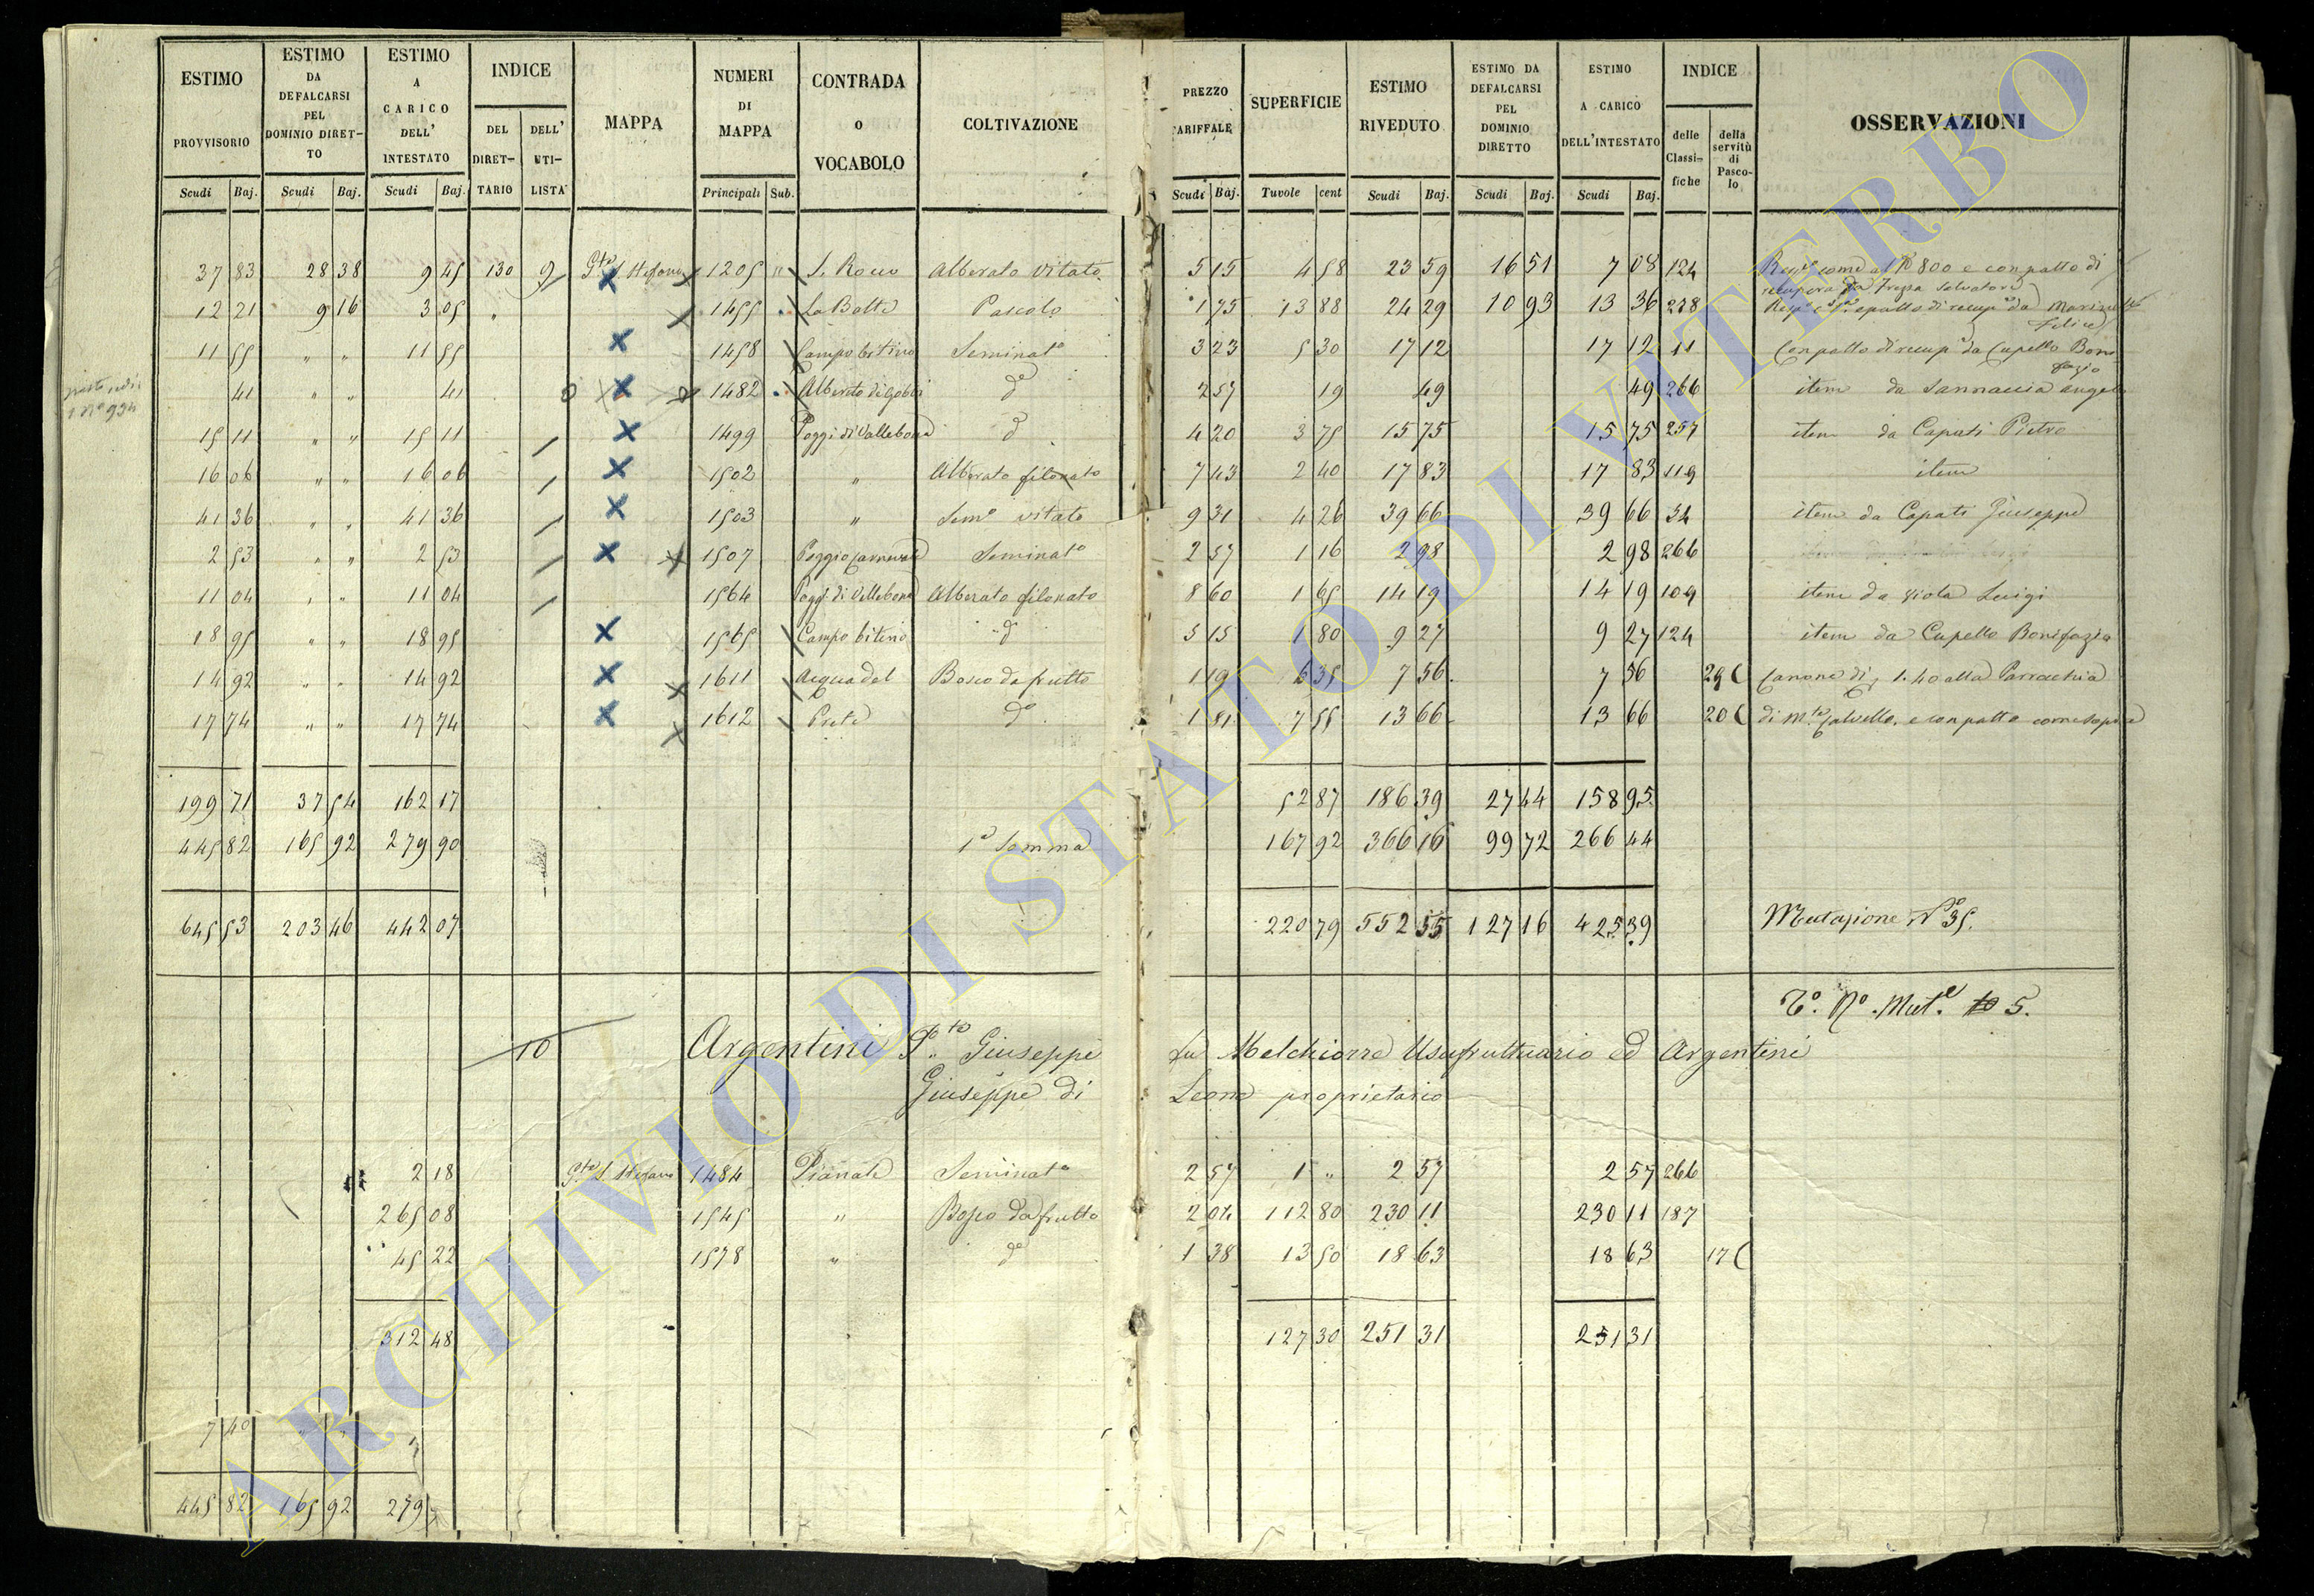 ESTIMO PROVVISORIO Scudi Baj.
ESTIMO DA DEFALCARSI PEL DOMINIO DIRET-TO Scudi Baj.
ESTIMO A CARICO DELL' INTESTATO Scudi Baj.
INDICE DEL DIRET-TARIO DELL' UTI-LISTA
MAPPA
NUMERI DI MAPPA Principali Sub.
CONTRADA O VOCABOLO
COLTIVAZIONE
PREZZO TARIFFALE Scudi Baj.
SUPERFICIE Tavole cent
ESTIMO RIVEDUTO Scudi Baj.
ESTIMO DA DEFALCARSI PEL DOMINIO DIRETTO Scudi Baj.
ESTIMO A CARICO DELL'INTESTATO Scudi Baj.
INDICE delle Classi-fiche della servitù di Pasco-lo
OSSERVAZIONI
37 83 28 38 9 45 130 9 S. Stefano 1205 " S. Rocco Alberato vitato 5 15 4 58 23 59 16 51 7 08 124 come al N° 800 e con patto di
recupera da Frezza Salvatore
12 21 9 16 3 05 " 1455 La Botte Pascolo 1 75 13 88 24 29 10 93 13 36 278 e patto di recup da
Felice
11 55 " " 11 55 1458 Campo bitino Seminato 3 23 5 30 17 12 17 12 11 Con patto di recup da Cupello Boni
fazio
41 " " 41 1482 d° 2 57 19 49 49 266 item da Sannaccia Angelo
15 11 " " 15 11 1499 Poggi di Vallebona d° 4 20 3 75 15 75 15 75 257 item da Capati Pietro
16 06 " " 16 06 1502 " Alberato filonato 7 43 2 40 17 83 17 83 119 item
41 36 " " 41 36 1503 " Sem° vitato 9 31 4 26 39 66 39 66 34 item da Capati Giuseppe
2 53 " " 2 53 1507 Seminato 2 57 1 16 2 98 2 98 266
11 04 " " 11 04 1564 Poggi di Vallebona Alberato filonato 8 60 1 65 14 19 14 19 109 item da Viola Luigi
18 95 " " 18 95 1565 Campo bitino d° 5 15 1 80 9 27 9 27 124 item da Cupello Bonifazio
14 92 " " 14 92 1611 Acqua del Bosco da frutto 1 19 6 35 7 56 7 56 29 C Canone di 1.40 alla Parrochia
17 74 " " 17 74 1612 Prete d° 1 81 7 55 13 66 13 66 20 C di M.te Calvello, e con patto come sopra
199 71 37 54 162 17 52 87 186 39 27 44 158 95
445 82 165 92 279 90 1a Somma 167 92 366 16 99 72 266 44
645 53 203 46 442 07 220 79 552 55 127 16 425 39 Mutazione N° 35.
T°. N°. Mut.e 5.
10 Argentini Giuseppe fu Melchiorre Usufruttuario ed Argentini
Giuseppe di Leone proprietario
2 18 S. Stefano 1484 Pianate Seminato 2 57 1 " 2 57 2 57 266
265 08 1545 " Bosco da frutto 2 04 112 80 230 11 230 11 187
45 22 1578 " d° 1 38 13 50 18 63 18 63 17 C
312 48 127 30 251 31 251 31
7 40 " "
445 82 165 92 279
ARCHIVIO DI STATO DI VITERBO